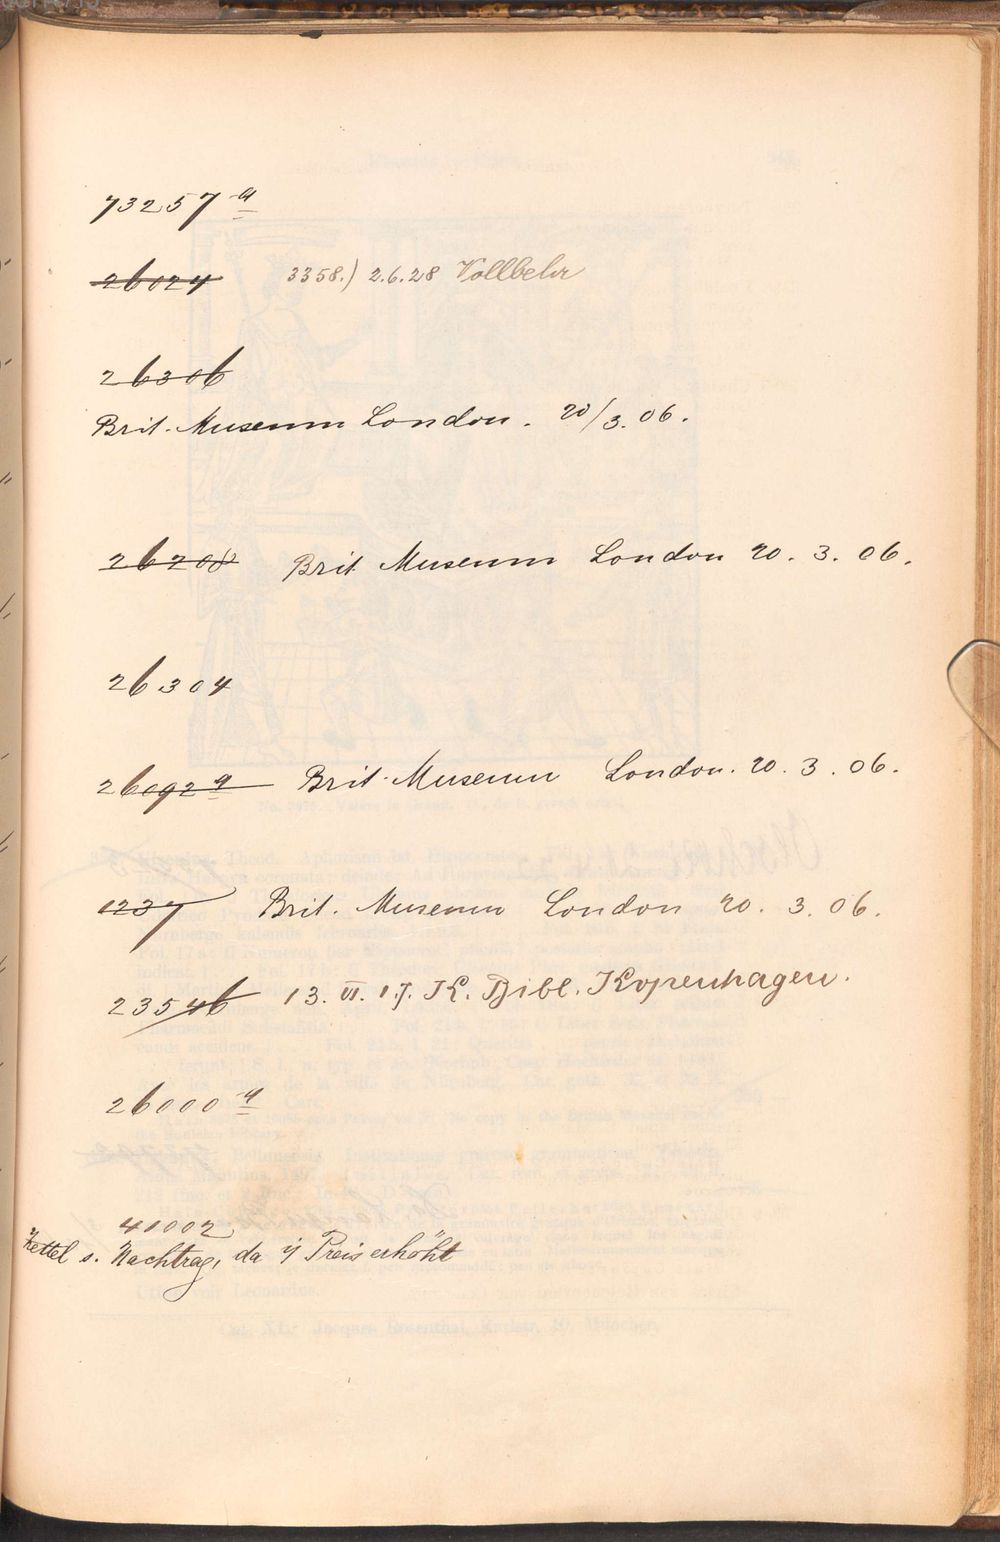 73257 a
26024 3358.) 2.6.28 Vollbehr
26306
Brit. Museum London. 20/3. 06.
26208 Brit Museum London 20. 3. 06.
26304
26092 a Brit. Museum London. 20. 3. 06.
1237 Brit. Museum London 20. 3. 06.
23546 13. VI. 17. K. Bibl. Kopenhagen.
26000 a
41002
Zettel s. Nachtrag, da i/ Preis erhöht